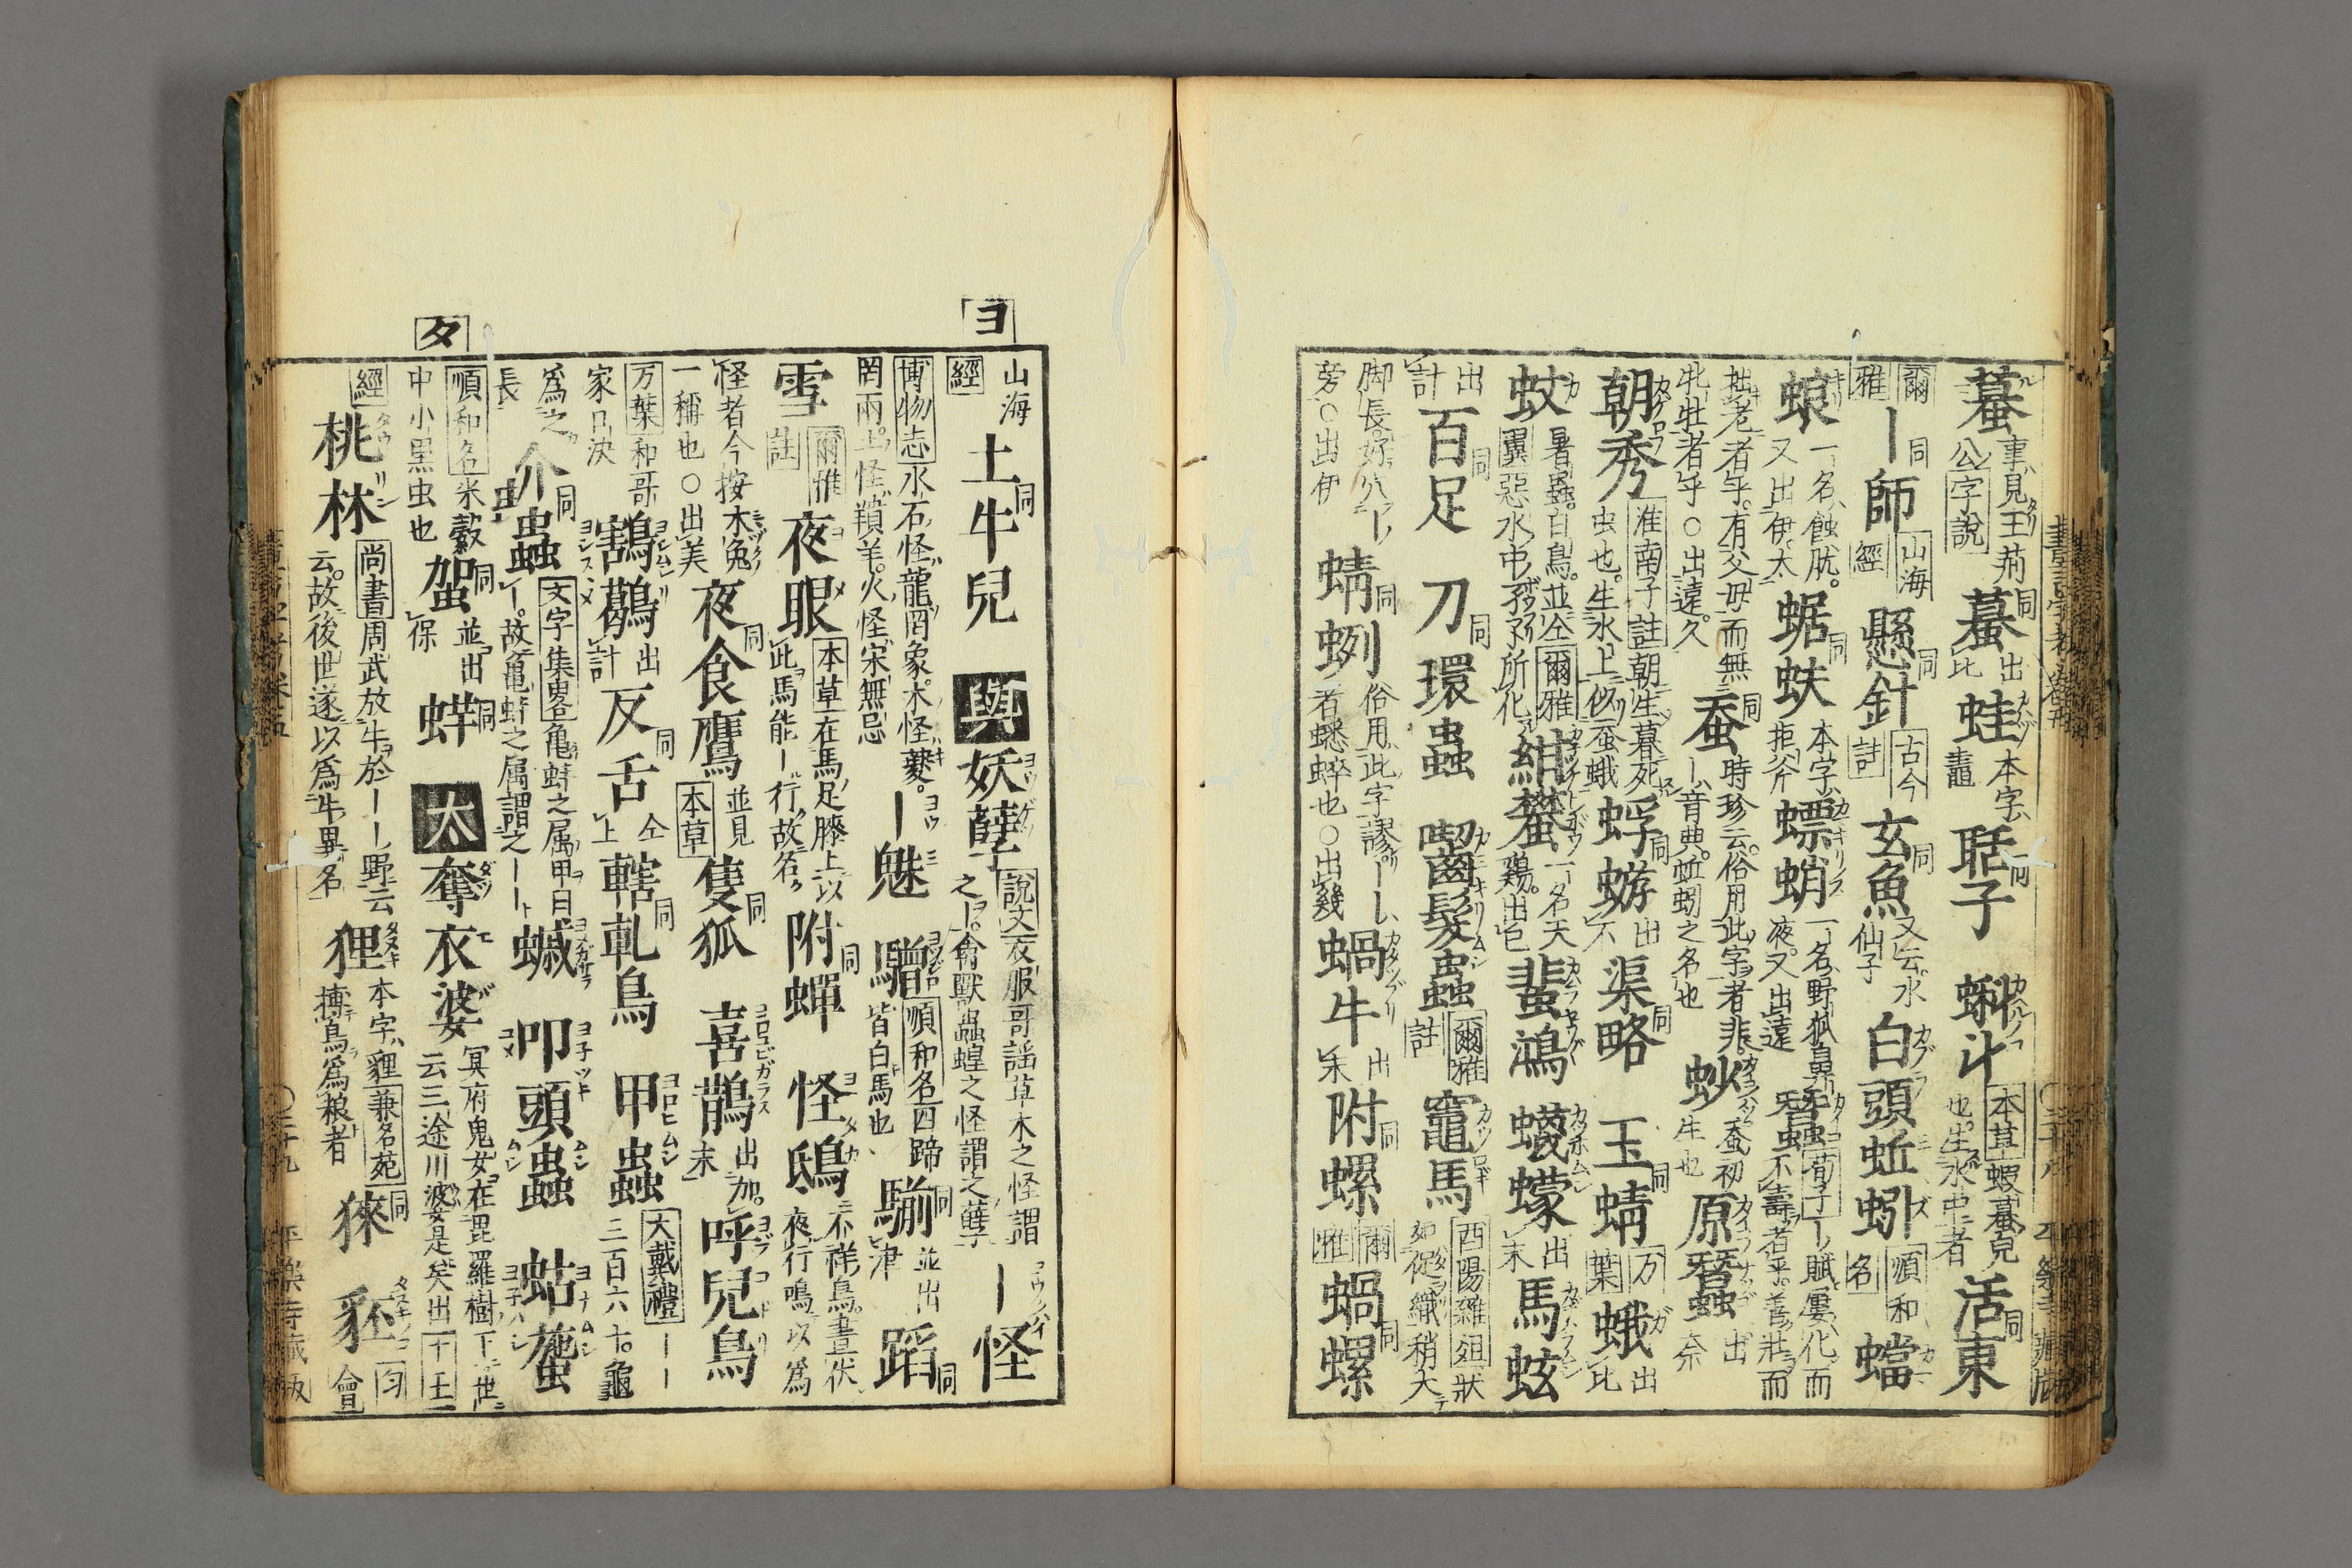 蟇 事見王荊公字說 蟇同 出比 蛙 本字鼃 聒子同 蝌斗 本草蝦蟇兒也生水中者 活東同
爾雅 ー師同 山海經 懸針同 古今註 玄魚同 又云水仙子 白頭蚯蚓 順和名 蟷
蜋 一名蝕肬又出伊太 蜛蚨同 本字拒斧 螵蛸 一名野狐鼻液又出遠 蠶 荀子ー賦屢化而不壽者乎善壯而
拙老者乎有父母而無牝牡者乎○出遠久 蚕同 時珍云俗用此字者非ー音典蚯蚓之名也 䖢 蚕初生也 原蠶 出奈
朝秀 准南子註朝生暮死虫也生水上似蚕蛾 蜉蝣同 出不 渠略同 玉蜻同 万葉 蛾 出比
蚊 暑蟲白鳥並仝爾雅翼惡水中孑孑所化 紺蠜 一名天鷄出己 蜚鴻 蠛蠓 出末 馬蚿
出計 百足同 刀環蟲同 齧髮蟲 爾雅註 竈馬 酉陽雜俎狀如促織稍大
脚長好穴ー 蜻蛚同 俗用此字謬ーー者蟋蟀也○出幾 蝸牛 出末 附螺同 爾雅 蝸螺同
旁○出伊
ヨ
山海經 土牛兒同 與 妖孽 說文衣服哥謡草木之怪謂之ー禽獸蟲蝗之怪謂之蠥 ー怪
博物志水石怪龍罔象木怪夔罔兩土怪羵羊火怪宋無忌 ー魅 驓 順和名四蹄皆白馬也 騚同 並出津 蹈同
雪 爾雅註 夜眼 本草在馬足膝上以此馬能ー行故名 附蟬同 怪鴟 不祥鳥晝伏夜行鳴以爲
怪者今按木兔一稱也○出美 夜食鷹同 並見本草 隻狐同 喜鵲 出加末 呼兒鳥
万葉和哥家凡決 鶷鶡 出計 反舌同 仝上 轄軋鳥同 甲蟲 大戴禮ーー三百六十龜
爲之長 介蟲同 文字集畧亀蚌之属甲曰ー故亀蚌之属謂之ーー 蝛 叩頭蟲 蛄䗐
タ
順和名米穀中小黒虫也 䖪同 並出保 蛘同 太 奪衣婆 冥府鬼女在毘羅樹下世云三途川婆是矣出十王
經 桃林 尚書周武放牛於ーー野云云故後世遂以爲牛異名 狸 本字貍兼名苑搏鳥爲粮者 猍同 豾 匀會
平樂寺藏版